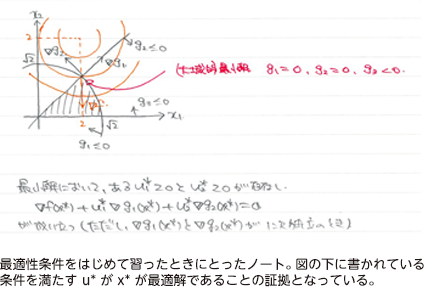 x₂
2
√2
∇g₂
g₂≤0
∇g₁
大域的最小解 g₁=0, g₂=0, g₃<0.
g₃≤0
x₁
2
√2
g₁≤0
最小解において、ある u₁*≥0 と u₂*≥0 が存在し、
∇f(x*)+u₁*∇g₁(x*)+u₂*∇g₂(x*)=0
が成り立つ(ただし、∇g₁(x*)と∇g₂(x*)が一次独立のとき)
最適性条件をはじめて習ったときにとったノート。図の下に書かれている
条件を満たす u* が x* が最適解であることの証拠となっている。